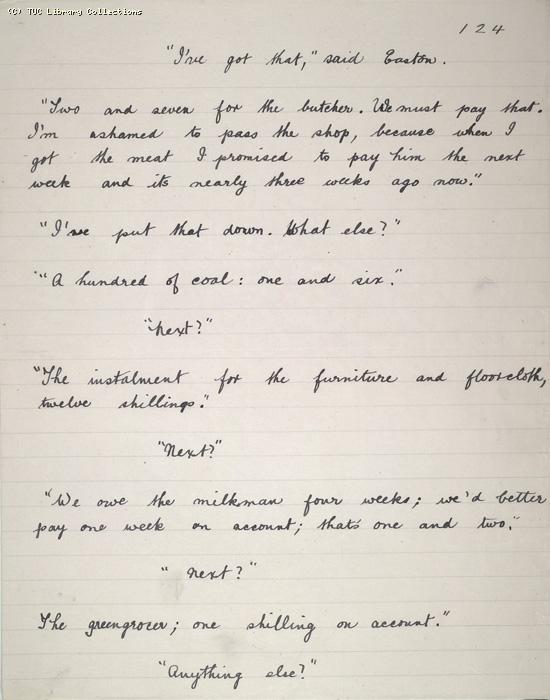 (C) TUC Library Collections
124
"I've got that," said Easton.
"Two and seven for the butcher. We must pay that.
I'm ashamed to pass the shop, because when I
got the meat I promised to pay him the next
week and its nearly three weeks ago now."
"I've put that down. What else?"
"A hundred of coal: one and six."
"next?"
"The instalment for the furniture and floorcloth,
twelve shillings."
"Next?"
"We owe the milkman four weeks; we'd better
pay one week on account; that's one and two."
"next?"
The greengrocer; one shilling on account."
"Anything else?"